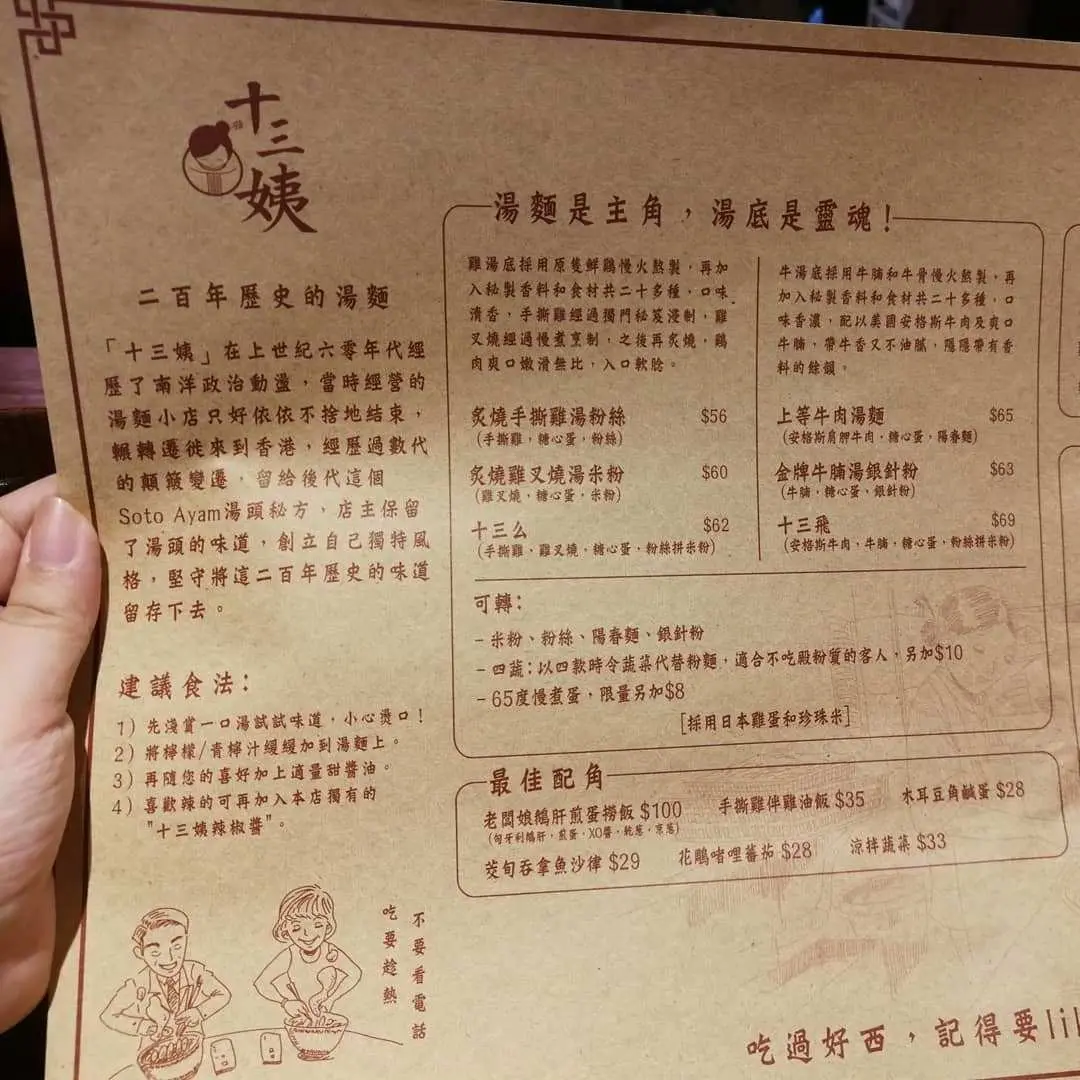 十三姨
二百年歷史的湯麵
「十三姨」在上世紀六零年代經
歷了南洋政治動盪，當時經營的
湯麵小店只好依依不捨地結束，
輾轉遷徙來到香港，經歷過數代
的顛簸變遷，留給後代這個
Soto Ayam湯頭秘方，店主保留
了湯頭的味道，創立自己獨特風
格，堅守將這二百年歷史的味道
留存下去。
建議食法：
1) 先淺嘗一口湯試試味道，小心燙口！
2) 將檸檬/青檸汁緩緩加到湯麵上。
3) 再隨您的喜好加上適量甜醬油。
4) 喜歡辣的可再加入本店獨有的
"十三姨辣椒醬"。
不要看電話
吃要趁熱
湯麵是主角，湯底是靈魂！
雞湯底採用原隻鮮鷄慢火熬製，再加
入秘製香料和食材共二十多種，口味
清香，手撕雞經過獨門秘笈浸制，雞
叉燒經過慢煮烹制，之後再炙燒，鷄
肉爽口嫩滑無比，入口軟腍。
炙燒手撕雞湯粉絲 $56
(手撕雞，糖心蛋，粉絲)
炙燒雞叉燒湯米粉 $60
(雞叉燒，糖心蛋，米粉)
十三么 $62
(手撕雞，雞叉燒，糖心蛋，粉絲拼米粉)
牛湯底採用牛腩和牛骨慢火熬製，再
加入秘製香料和食材共二十多種，口
味香濃，配以美國安格斯牛肉及爽口
牛腩，帶牛香又不油膩，隱隱帶有香
料的餘韻。
上等牛肉湯麵 $65
(安格斯肩胛牛肉，糖心蛋，陽春麵)
金牌牛腩湯銀針粉 $63
(牛腩，糖心蛋，銀針粉)
十三飛 $69
(安格斯牛肉，牛腩，糖心蛋，粉絲拼米粉)
可轉：
- 米粉、粉絲、陽春麵、銀針粉
- 四蔬：以四款時令蔬菜代替粉麵，適合不吃殿粉質的客人，另加$10
- 65度慢煮蛋，限量另加$8
[採用日本雞蛋和珍珠米]
最佳配角
老闆娘鵝肝煎蛋撈飯 $100
(匈牙利鵝肝，煎蛋，XO醬，乾葱，京葱)
手撕雞伴雞油飯 $35
木耳豆角鹹蛋 $28
茭旬吞拿魚沙律 $29
花鵰啫哩蕃茄 $28
涼拌蔬菜 $33
吃過好西，記得要lik